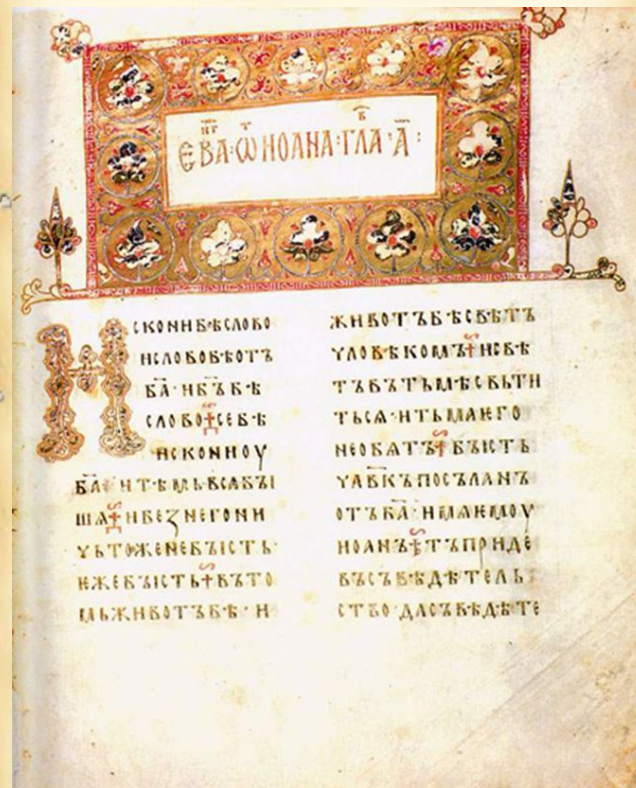 ЕВА·ѾИОАНА·ГЛА·А҃:
ИСКОНИБѢСЛОВО
ИСЛОВОБѢОТЪ
БА҃·ИБЪ҃БѢ
СЛОВО СЕБѢ
ИСКОНИОУ
БА҃ ИТѢМЬВСЯБЫ
ША ИБЕЗНЕГОНИ
ЧЬТОЖЕНЕБЪІСТЬ·
ѤЖЕБЪІСТЬ ВЪТО
МЬЖИВОТЪБѢ·И
ЖИВОТЪБѢСВѢТЪ
ЧЛОВѢКОМЪ ИСВѢ
ТЪВЪТЬМѢСВЬТИ
ТЬСѦ·ИТЬМАѤГО
НЕОБѦТЪ БЪІСТЬ
ЧЛ҃ВКЪПОСЪЛАНЪ
ОТЪБА҃·ИМѦѤМОУ
ИОАНЪ ТЪПРИДЕ
ВЪСЪВѢДѢТЕЛЬ
СТВО·ДАСЪВѢДѢТЕ